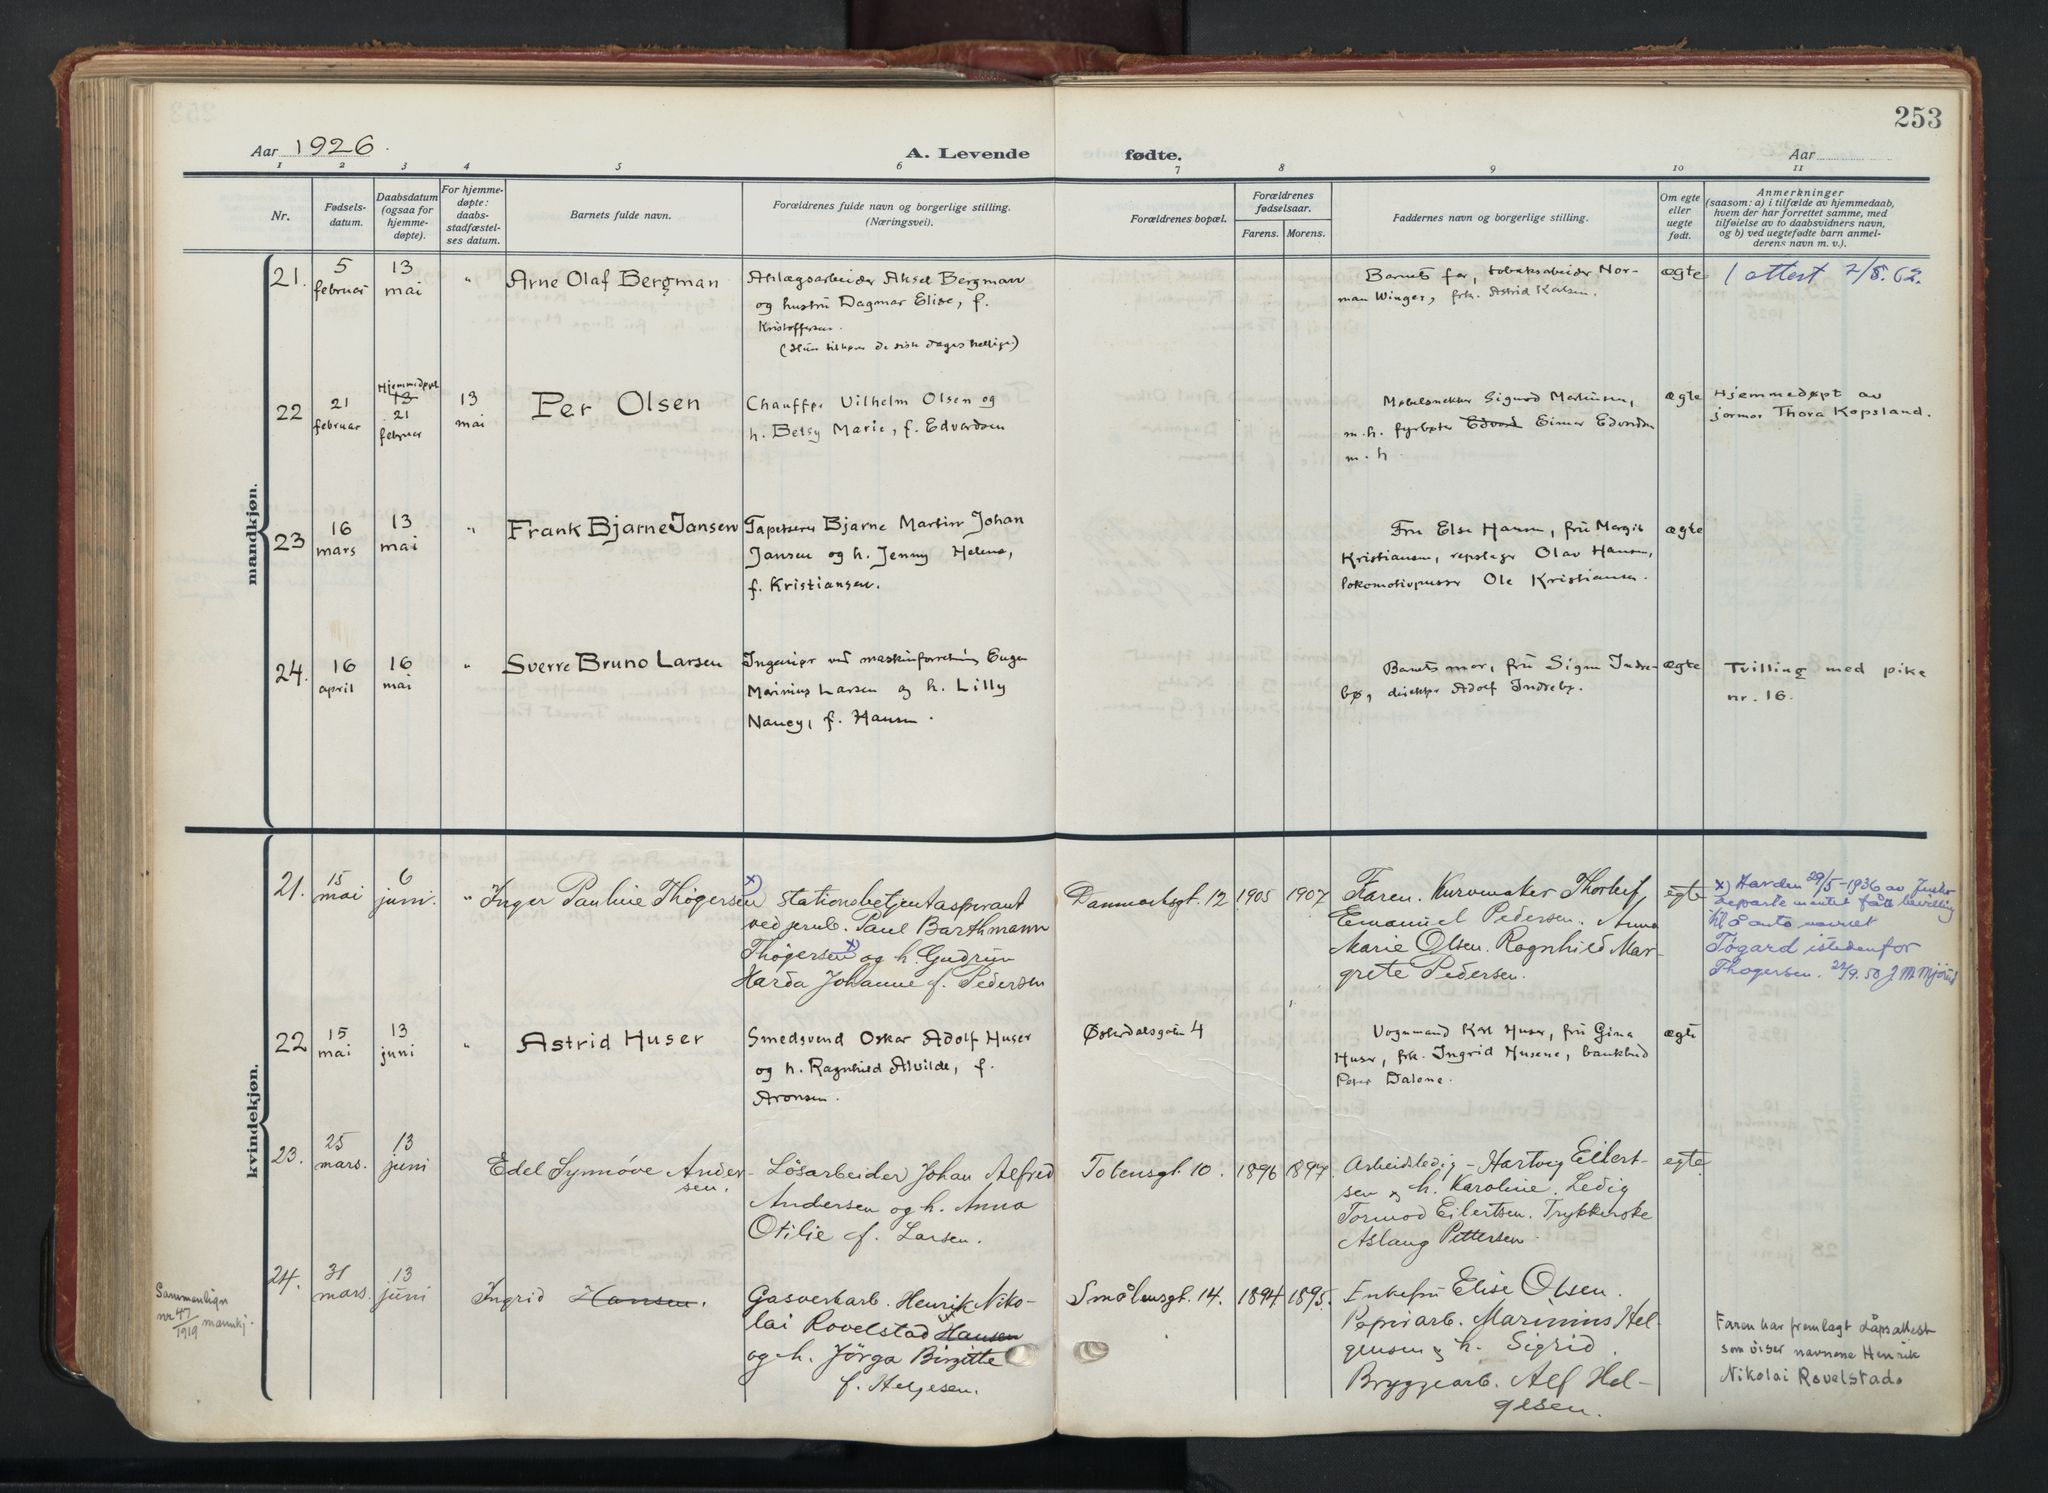 253
Aar 1926.
A. Levende
fødte.
Aar
1 2 3 4 5 6 7 8 9 10 11
Nr.
Fødsels-
datum.
Daabsdatum
(ogsaa for
hjemme-
døpte).
For hjemme-
døpte:
daabs-
stadfæstel-
ses datum.
Barnets fulde navn.
Forældrenes fulde navn og borgerlige stilling.
(Næringsvei).
Forældrenes bopæl.
Forældrenes
fødselsaar.
Farens. Morens.
Faddernes navn og borgerlige stilling.
Om egte
eller
uegte
født.
Anmerkninger
(saasom: a) i tilfælde av hjemmedaab,
hvem der har forrettet samme, med
tilføielse av to daabsvidners navn,
og b) ved uegtefødte barn anmel-
derens navn m. v.).
mandkjøn.
21.
5
februar
13
mai
"
Arne Olaf Bergman
Anlægsarbeider Aksel Bergmann
og hustru Dagmar Elise, f.
Kristoffersen.
(Hun tilhører de siste dages hellige)
Barnets far, tobaksarbeider Nor-
man Winger, frk. Astrid Karlsen.
ægte
1 attest 2/8. 62.
22
21
februar
Hjemmedøpt
13
21
februar
13
mai
Per Olsen
Chauffør Vilhelm Olsen og
h. Betsy Marie, f. Edvardsen
Møbelsnekker Sigurd Martinsen,
m. h. fyrbøter Edvard Einar Edvardsen
m. h.
ægte
Hjemmedøpt av
jormor Thora Kopsland.
23
16
mars
13
mai
"
Frank Bjarne Jansen
Tapetserer Bjarne Martin Johan
Jansen og h. Jenny Helene,
f. Kristiansen.
Fru Else Hansen, fru Margit
Kristiansen, repslager Olav Hansen,
lokomotivpusser Ole Kristiansen.
ægte
24.
16
april
16
mai
"
Sverre Bruno Larsen
Ingeniør ved maskinforretning Eugen
Marinius Larsen og h. Lilly
Nancy, f. Hansen.
Barnets mor, fru Signe Indre-
bø, direktør Adolf Indrebø.
ægte
Tvilling med pike
nr. 16.
kvindekjøn.
21.
15
mai
6
juni.
"
Inger Pauline Thøgersen x)
Stationsbetjentaspirant
ved jernb. Paul Barthmann
Thøgersen x) og h. Gudrun
Harda Johanne f. Pedersen
Danmarksgt. 12
1905
1907
Faren. Kurvmaker Thorleif
Emanuel Pedersen. Anna
Marie Olsen. Ragnhild Mar-
grete Pedersen.
egte
x) Har den 29/5-1936 av Justis-
departementet fått bevilling
til å anta navnet
Tøgard istedenfor
Thøgersen. 22/9. 50 J. M. Mjörud
22
15
mai
13
juni
"
Astrid Huser
Smedsvend Oskar Adolf Huser
og h. Ragnhild Alvilde, f.
Aronsen.
Østerdalsgaten 4
Vognmand Karl Huser, fru Gina
Huser, frk. Ingrid Husene, bankbud
Peder Dalene.
ægte
23.
25
mars.
13
juni
Edel Synnøve Ander-
sen.
Løsarbeider Johan Alfred
Andersen og h. Anna
Otilie f. Larsen.
Totensgt. 10.
1896
1897.
Arbeidsledig - Hartvig Eilert-
sen og h. Karoline. Ledig
Tormod Eilertsen. Trykkerske
Aslaug Pettersen.
egte
Sammenlign
nr 47/1919 mannkj.
24.
31
mars.
13
juni
Ingrid Hansen.
Gasverkarb. Henrik Niko-
lai Rovelstad Hansen
og h. Jørga Birgitte
f. Helgesen.
Smålensgt. 14.
1894
1895.
Enkefru Elise Olsen.
Papirarb. Marinius Hel-
gensen og h. Sigrid.
Bryggearb. Alf Hel-
gesen.
Faren har fremlagt dåpsattest
som viser navnene Henrik
Nikolai Rovelstad.